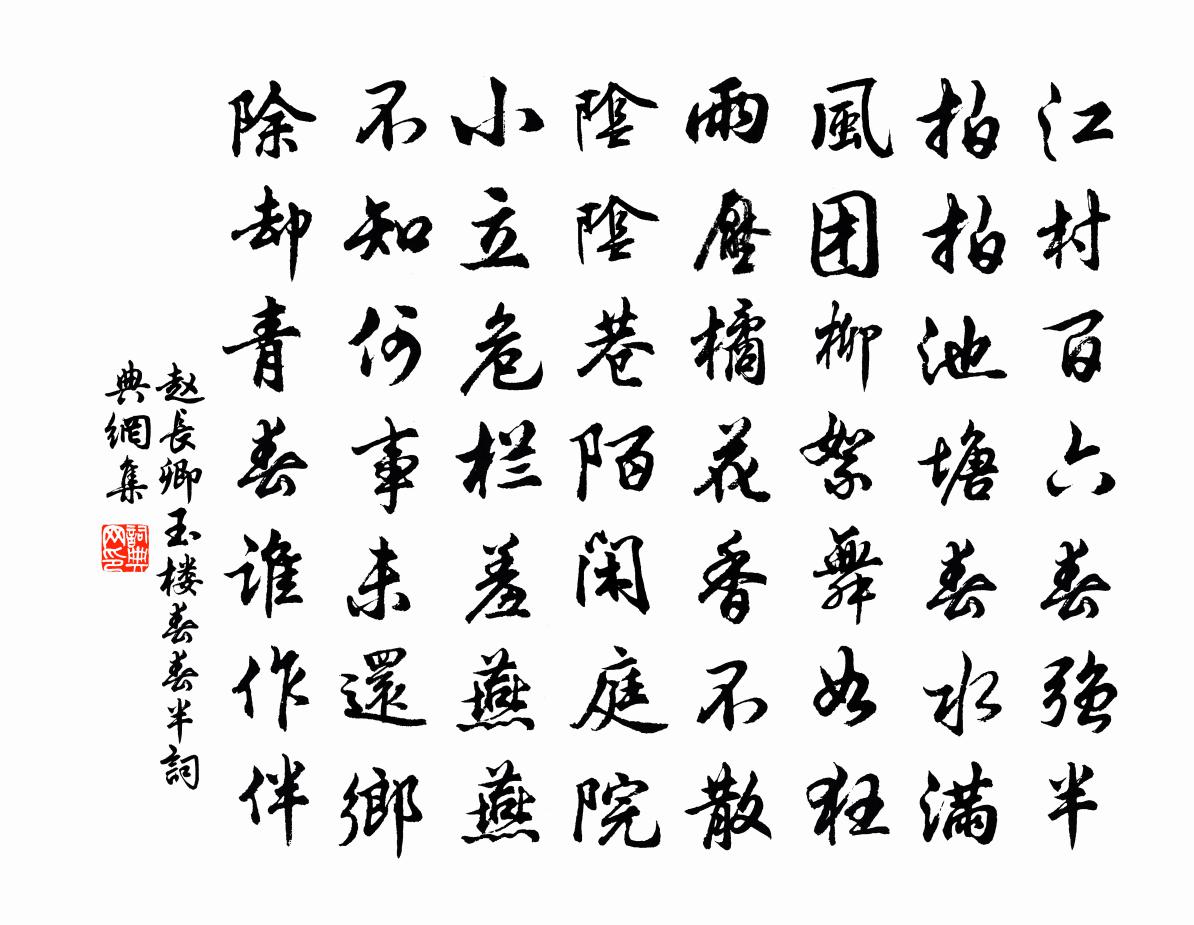 江村百六春强半
拍拍池塘春水满
風团柳絮舞如狂
雨壓橘花香不散
陰陰巷陌闲庭院
小立危栏羞燕燕
不知何事未還鄉
除却青春谁作伴
赵長卿玉楼春春半詞
典網集
詞典
网印